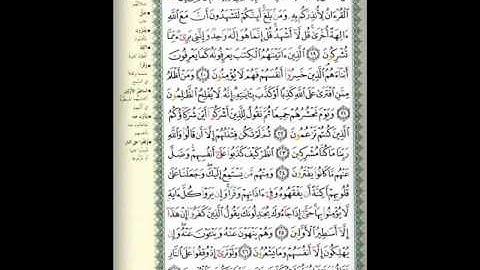 الْقُرْءَانُ لِأُنذِرَكُم بِهِۦ وَمَنۢ بَلَغَ أَئِنَّكُمْ لَتَشْهَدُونَ أَنَّ مَعَ اللَّهِ
ءَالِهَةً أُخْرَىٰ قُل لَّآ أَشْهَدُ قُلْ إِنَّمَا هُوَ إِلَٰهٌ وَٰحِدٌ وَإِنَّنِى بَرِىٓءٌ مِّمَّا
تُشْرِكُونَ ١٩ الَّذِينَ ءَاتَيْنَٰهُمُ الْكِتَٰبَ يَعْرِفُونَهُۥ كَمَا يَعْرِفُونَ
أَبْنَآءَهُمُ الَّذِينَ خَسِرُوٓا۟ أَنفُسَهُمْ فَهُمْ لَا يُؤْمِنُونَ ٢٠ وَمَنْ أَظْلَمُ
مِمَّنِ افْتَرَىٰ عَلَى اللَّهِ كَذِبًا أَوْ كَذَّبَ بِـَٔايَٰتِهِۦٓ إِنَّهُۥ لَا يُفْلِحُ الظَّٰلِمُونَ
٢١ وَيَوْمَ نَحْشُرُهُمْ جَمِيعًا ثُمَّ نَقُولُ لِلَّذِينَ أَشْرَكُوٓا۟ أَيْنَ شُرَكَآؤُكُمُ
الَّذِينَ كُنتُمْ تَزْعُمُونَ ٢٢ ثُمَّ لَمْ تَكُن فِتْنَتُهُمْ إِلَّآ أَن قَالُوا۟ وَاللَّهِ
رَبِّنَا مَا كُنَّا مُشْرِكِينَ ٢٣ انظُرْ كَيْفَ كَذَبُوا۟ عَلَىٰٓ أَنفُسِهِمْ وَضَلَّ
عَنْهُم مَّا كَانُوا۟ يَفْتَرُونَ ٢٤ وَمِنْهُم مَّن يَسْتَمِعُ إِلَيْكَ وَجَعَلْنَا عَلَىٰ
قُلُوبِهِمْ أَكِنَّةً أَن يَفْقَهُوهُ وَفِىٓ ءَاذَانِهِمْ وَقْرًا وَإِن يَرَوْا۟ كُلَّ ءَايَةٍ
لَّا يُؤْمِنُوا۟ بِهَا حَتَّىٰٓ إِذَا جَآءُوكَ يُجَٰدِلُونَكَ يَقُولُ الَّذِينَ كَفَرُوٓا۟ إِنْ هَٰذَآ
إِلَّآ أَسَٰطِيرُ الْأَوَّلِينَ ٢٥ وَهُمْ يَنْهَوْنَ عَنْهُ وَيَنْـَٔوْنَ عَنْهُ وَإِن
يُهْلِكُونَ إِلَّآ أَنفُسَهُمْ وَمَا يَشْعُرُونَ ٢٦ وَلَوْ تَرَىٰٓ إِذْ وُقِفُوا۟ عَلَى النَّارِ